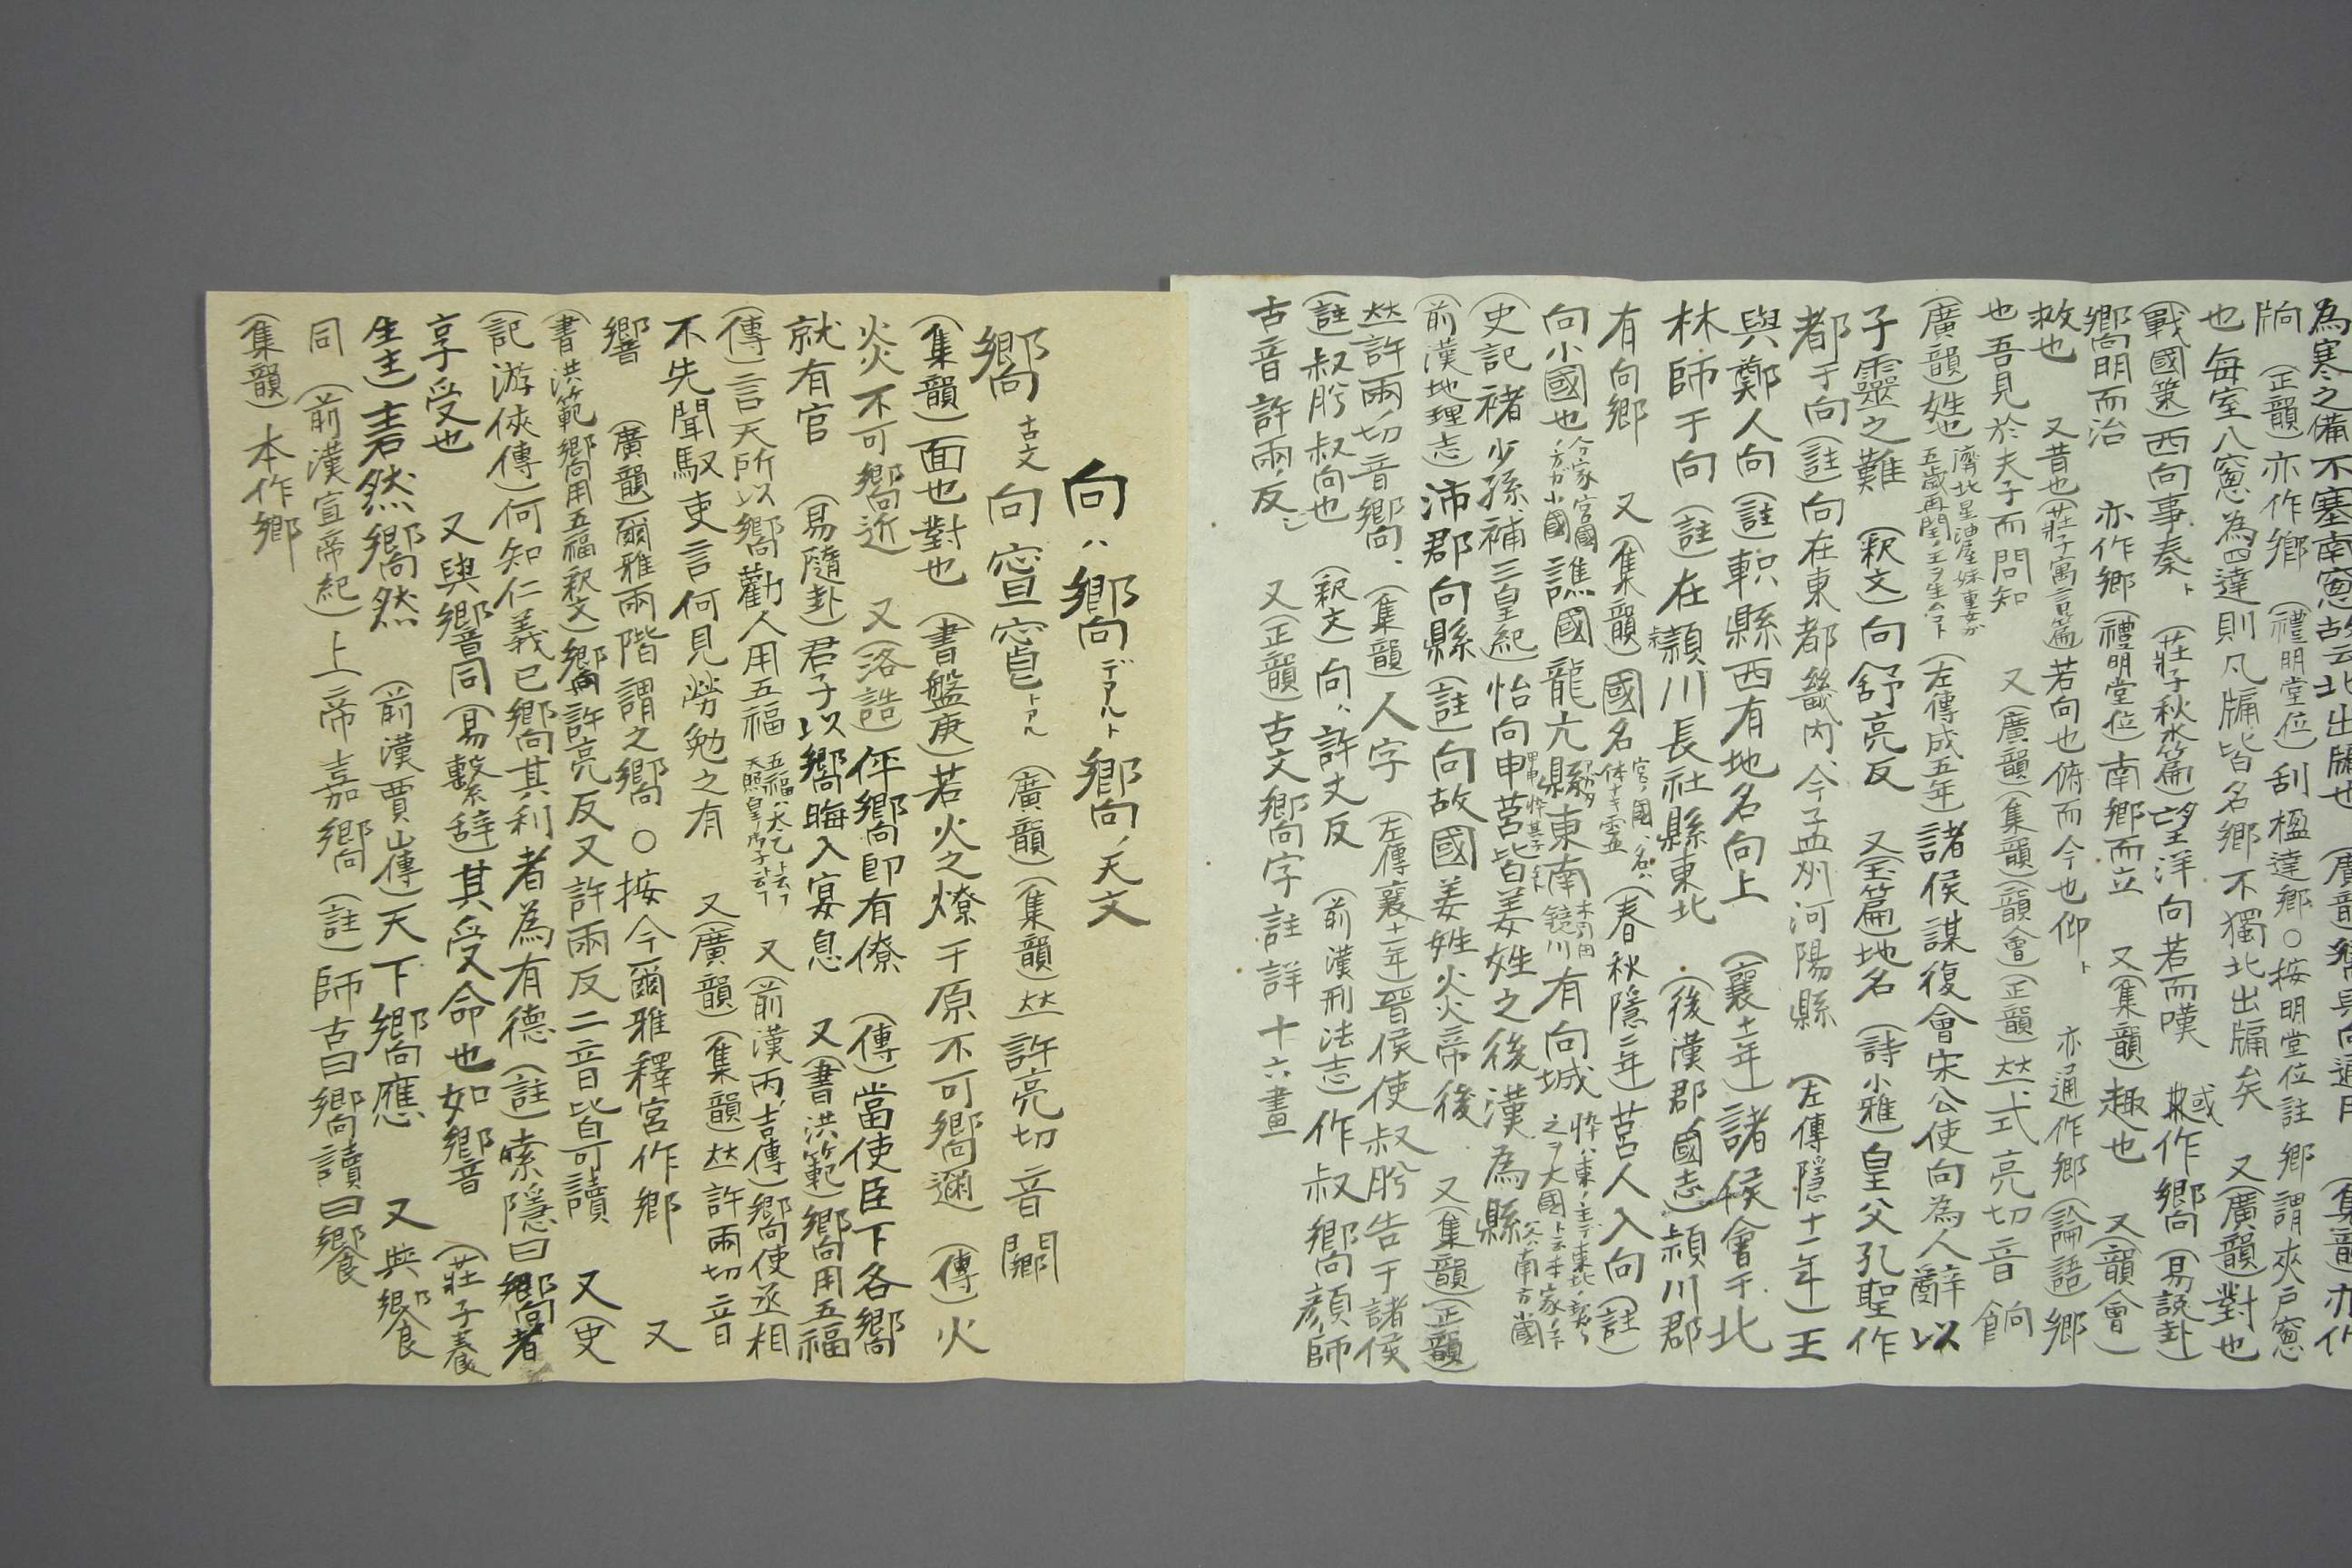 為寒之備不塞南窓故云北出牖也
牖(正韻)亦作鄉(禮明堂位)刮楹達鄉○按明堂位註鄉謂夾戸窓
也每室八窓為四達則凡牖皆名鄉不獨北出牖矣 又(廣韻)對也
(戰國策)西向事秦ト(莊子秋水篇)望洋向若而嘆 或作嚮(易説卦)
嚮明而治 亦作鄉(禮明堂位)南鄉而立 又(集韻)趣也 又(韻會)
救也 又昔也(莊子寓言篇)若向也俯而今也仰ト 亦通作鄉(論語)鄉
也吾見於夫子而問知 又(廣韻)(集韻)(韻會)(正韻)𠀤式亮切音餉
(廣韻)姓也 (左傳成五年)諸侯謀復會宋公使向為人辭以
子靈之難 (釈文)向舒亮反 又(玉篇)地名(詩小雅)皇父孔聖作
都于向(註)向在東都畿内、今孟州河陽縣 (左傳隱十一年)王
與鄭人向(註)軹縣西有地名向上 (襄十一年)諸侯會于北
林師于向(註)在潁川長社縣東北 (後漢郡國志)潁川郡
有向鄉 又(集韻)國名(春秋隱二年)莒人入向(註)
向小國也 譙國龍亢縣東南有向城
(史記褚少孫補三皇紀)怡向申莒皆姜姓之後漢為縣
(前漢地理志)沛郡向縣(註)向故國姜姓炎帝後 又(集韻)(正韻)
𠀤許兩切音嚮、(集韻)人字(左傳襄十一年)晉侯使叔肸告于諸侯
(註)叔肸叔向也 (釈文)向、許丈反 (前漢刑法志)作叔嚮顔師
古音許兩反 又(正韻)古文嚮字註詳十六畫
向ハ嚮デアルト嚮ノ天文
嚮 古文向㝁窻トアル(廣韻)(集韻)𠀤許亮切音闀
(集韻)面也對也 (書盤庚)若火之燎于原不可嚮邇 (傳)火
炎不可嚮近 又(洛誥)伻嚮卽有僚 (傳)當使臣下各嚮
就有官 (易隨卦)君子以嚮晦入宴息 又(書洪範)嚮用五福
(傳)言天所以嚮勸人用五福 又(前漢丙吉傳)嚮使丞相
不先聞馭吏言何見勞勉之有 又(廣韻)(集韻)𠀤許兩切音
響 (廣韻)爾雅兩階謂之嚮 ○按今爾雅釋宮作鄉 又
(書洪範嚮用五福釈文)嚮許亮反又許兩反二音皆可讀 又(史
記游俠傳)何知仁義已嚮其利者為有德(註)索隱曰嚮者
享受也 又與響同(易繫辭)其受命也如嚮音 (莊子養
生主)砉然嚮然 (前漢賈山傳)天下嚮應 又與饗
同 (前漢宣帝紀)上帝嘉嚮(註)師古曰嚮讀曰饗
(集韻)本作鄉